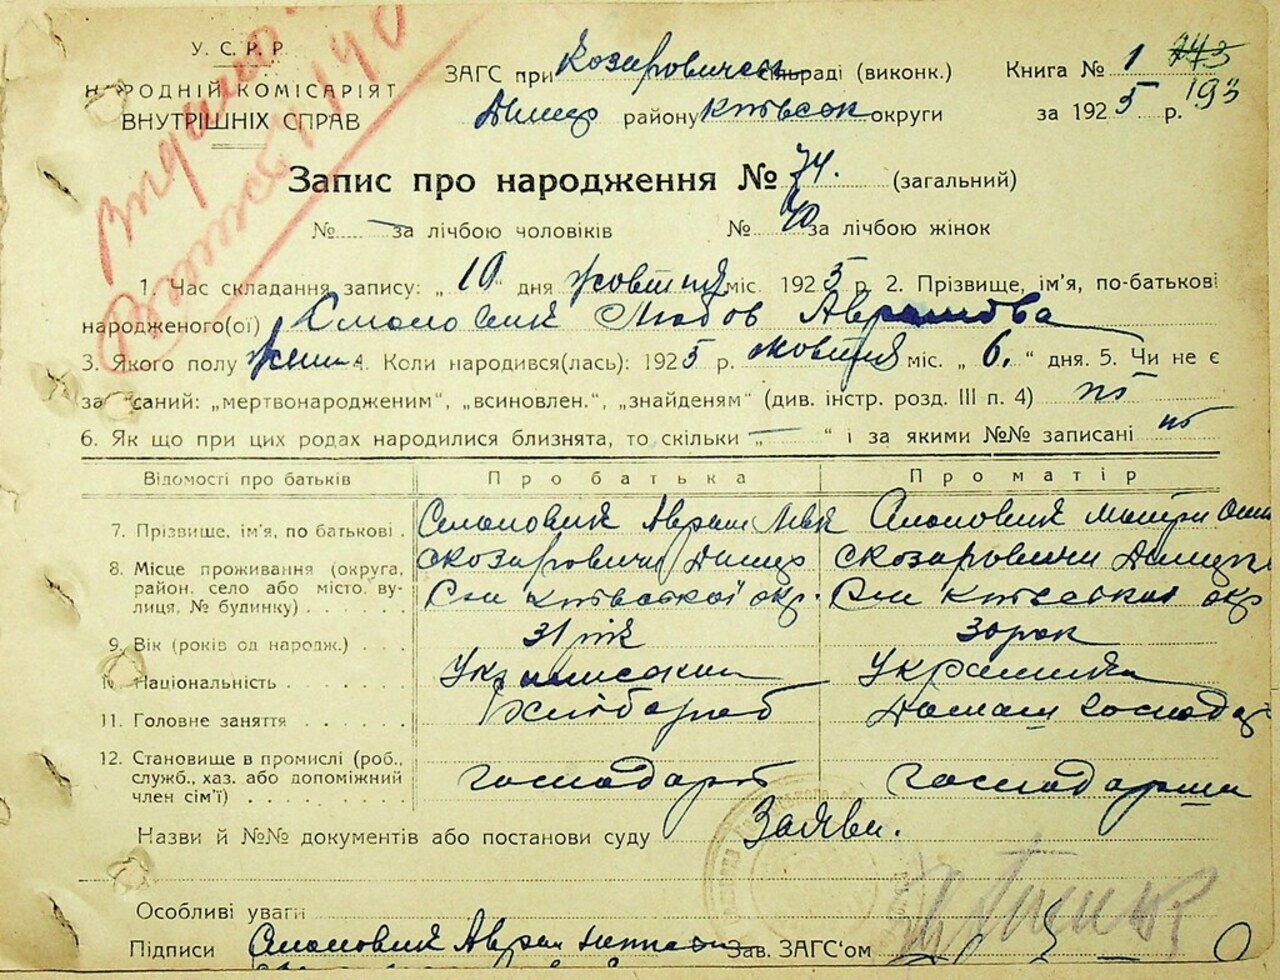 У. С. Р. Р.
НАРОДНІЙ КОМІСАРІЯТ
ВНУТРІШНІХ СПРАВ
ЗАГС при Козаровичськ сільраді (виконк.)
Димер району Київськ округи
Книга № 1 193
за 1925 р.
Запис про народження № 74. (загальний)
№ — за лічбою чоловіків № 40 за лічбою жінок
1. Час складання запису: „10“ дня жовтня міс. 1925 р. 2. Прізвище, ім'я, по-батькові
народженого(ої) Любов Аврамова
3. Якого полу жін 4. Коли народився(лась): 1925 р. жовтня міс. „6.“ дня. 5. Чи не є
записаний: „мертвонародженим“, „всиновлен.“, „знайденям“ (див. інстр. розд. III п. 4) ні
6. Як що при цих родах народилися близнята, то скільки „—“ і за якими №№ записані ні
Відомості про батьків Про батька Про матір
7. Прізвище, ім'я, по батькові Аврам
8. Місце проживання (округа, район, село або місто, вулиця, № будинку) с Козаровичи Димер с Козаровичи
Київської окр. Київської окр
9. Вік (років од народж.) 31 рік 30 рок
10. Національність Українка
11. Головне заняття Хлібороб Домаш господар
12. Становище в промислі (роб., служб., хаз. або допоміжний член сім'ї) господарь господарши
Назви й №№ документів або постанови суду Заяви.
Особливі уваги
Підписи Аврам Зав. ЗАГС'ом